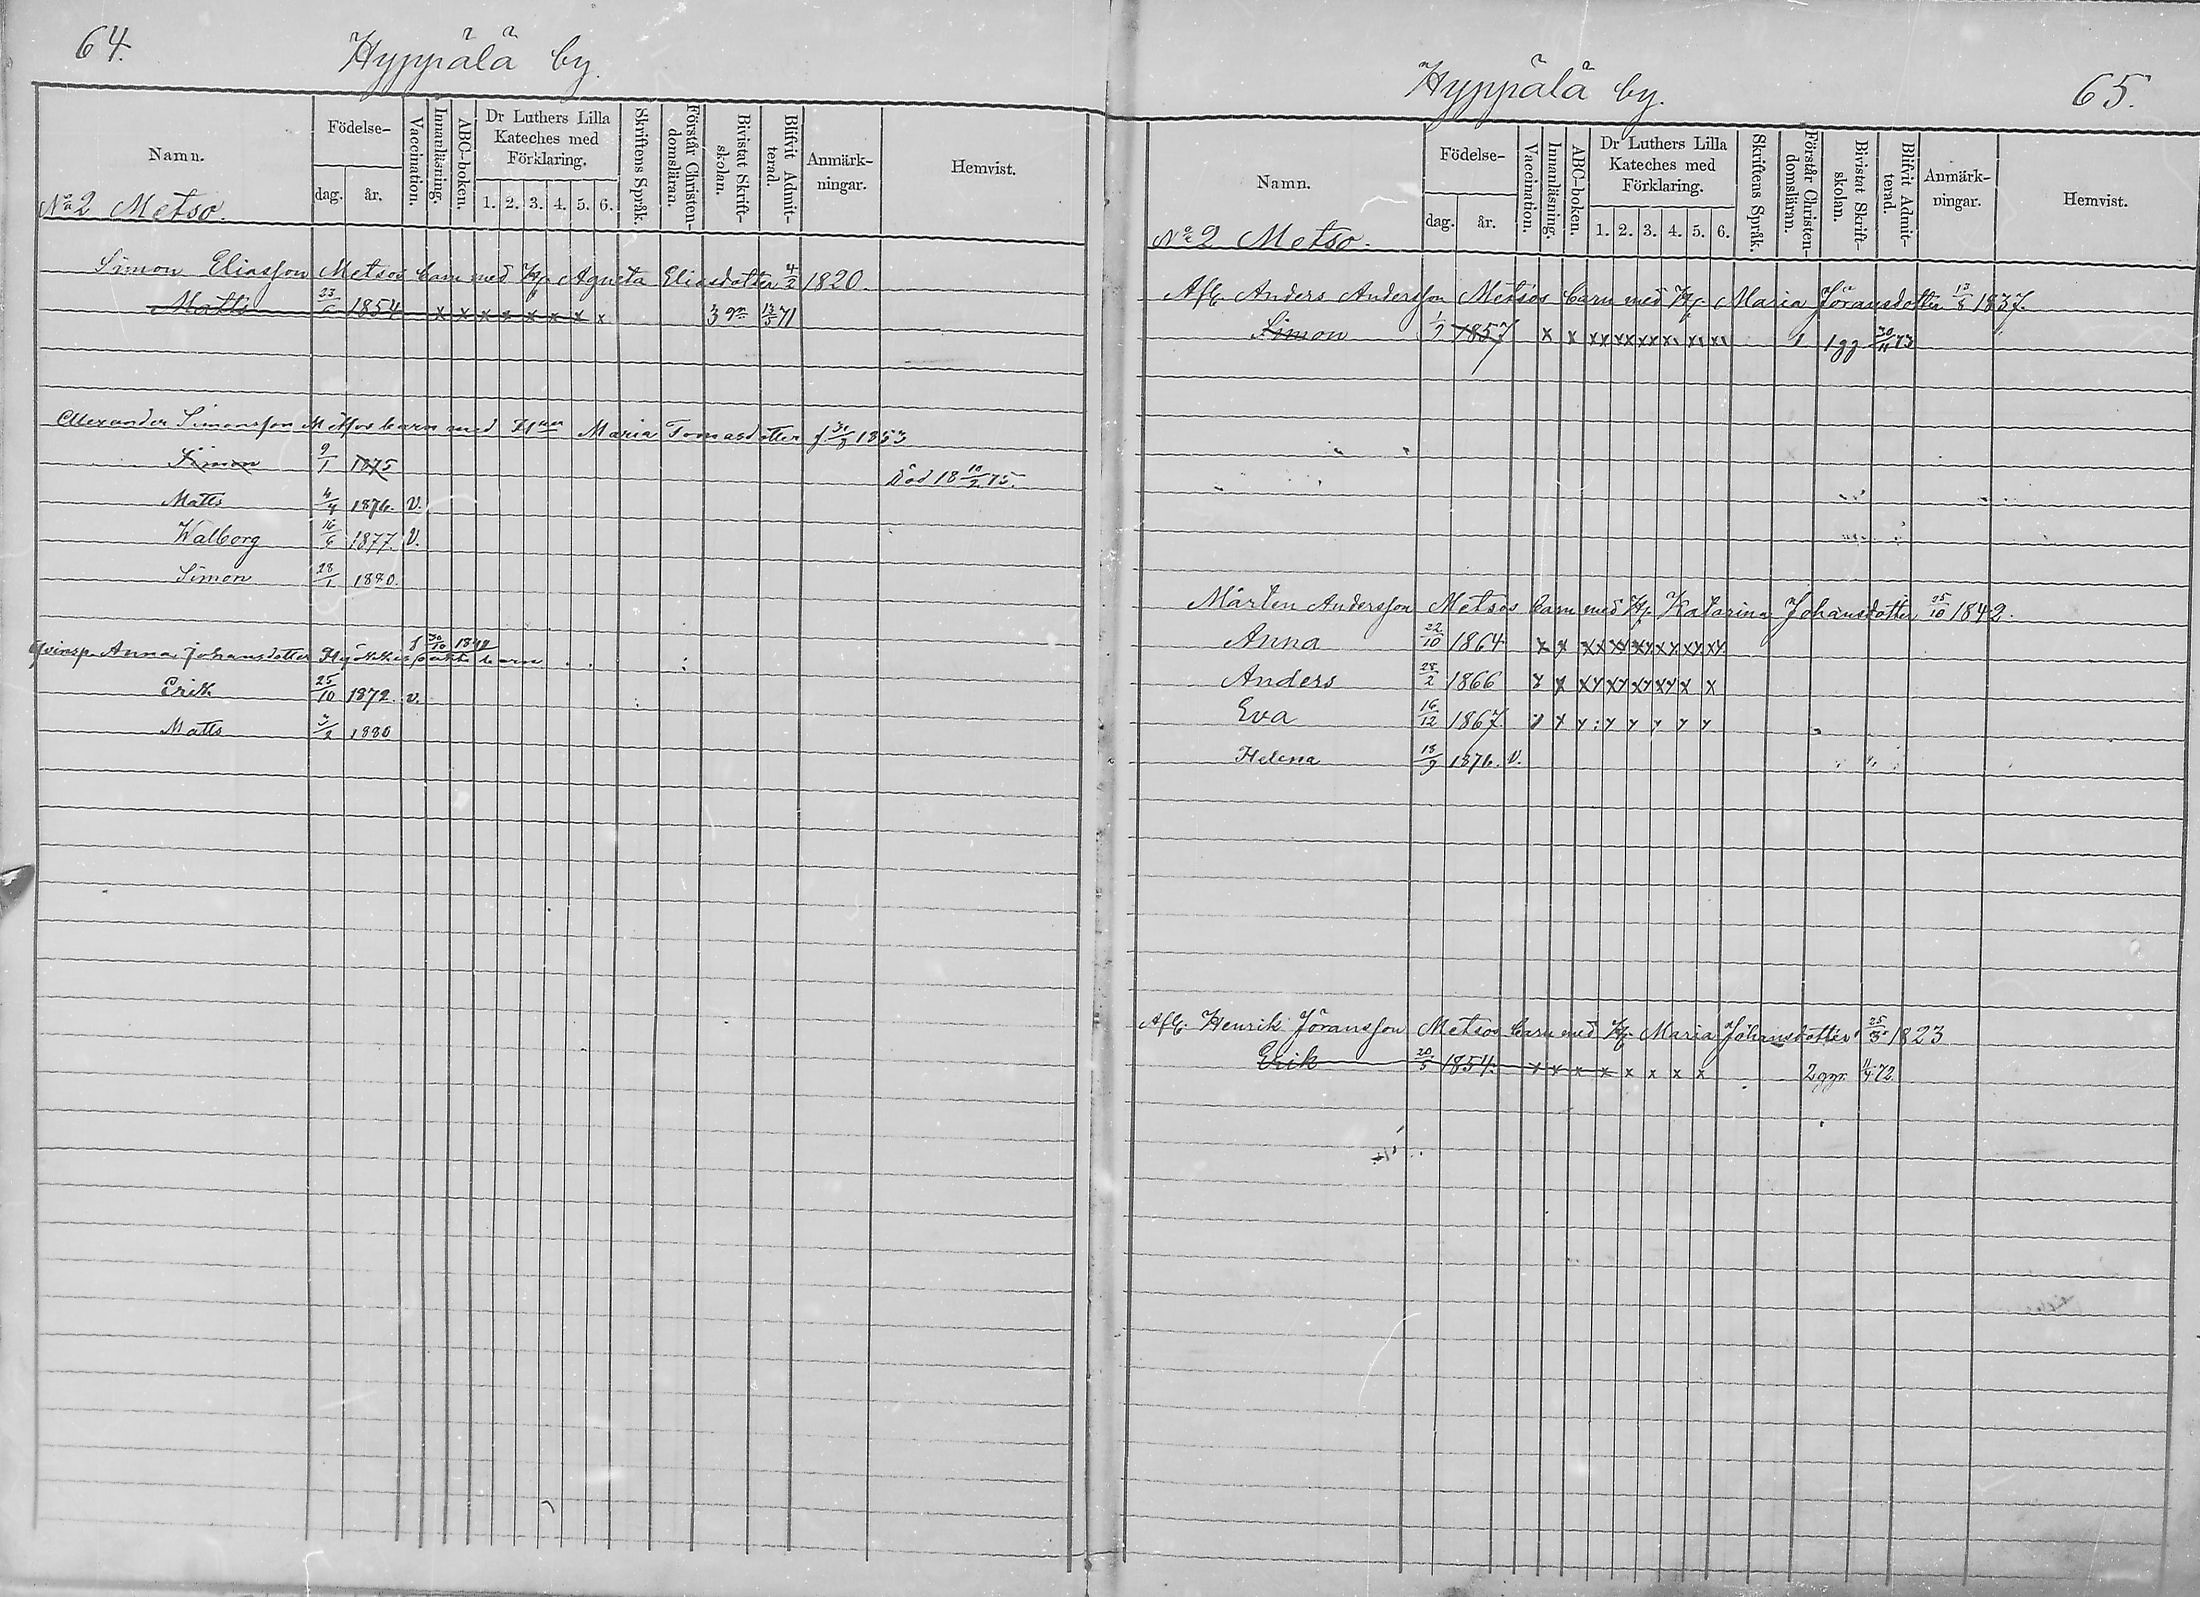 64.
Hyppälä by.
Namn.
Födelse-
dag.
år.
Vaccination.
Innanläsning.
ABC-boken.
Dr Luthers Lilla
Kateches med
Förklaring.
1. 2. 3. 4. 5. 6.
Skriftens Språk.
Förstår Christen-
domsläran.
Bivistat Skrift-
skolan.
Blifvit Admit-
terad.
Anmärk-
ningar.
Hemvist.
No 2 Metso.
Simon Eliasson Metsos barn med H. Agneta Eliasdotter 4/2 1820.
Matts 23/6 1854 x x x x x x x x 3 gr 13/5 71
Alexander Simonsson Metsos barn med Hu Maria Tomasdotter f. 1853
Simon 9/1 1875 Död 18 10/2 75.
Matts 4/4 1876. v.
Walborg 16/6 1877. v.
Simon 28/1 1880.
f 30/10 1849
Qvinsp. Anna Johansdotter barn
Erik 25/10 1872. v.
Matts 3/2 1880
Hyppälä by.
65.
Namn.
Födelse-
dag.
år.
Vaccination.
Innanläsning.
ABC-boken.
Dr Luthers Lilla
Kateches med
Förklaring.
1. 2. 3. 4. 5. 6.
Skriftens Språk.
Förstår Christen-
domsläran.
Bivistat Skrift-
skolan.
Blifvit Admit-
terad.
Anmärk-
ningar.
Hemvist.
No 2 Metso.
Afl. Anders Andersson Metsos barn med H. Maria Jöransdotter 13/8 1837.
Simon 1/2 1857 x x xx xx xx xx xx xx 1 1 gg 30/11 73
Mårten Andersson Metsos barn med H. Katarina Johansdotter 25/10 1842.
Anna 22/10 1864 x x xx xx xx xx xx xx
Anders 28/2 1866 x x xx xx xx xx x x
Eva 16/12 1867. x x x x x x x x
Helena 18/9 1876. v.
Afl. Henrik Jöransson Metsos barn med H. Maria Johansdotter 25/3 1823
Erik 20/5 1854. x x x x x x x x 2 ggr. 11/4 72